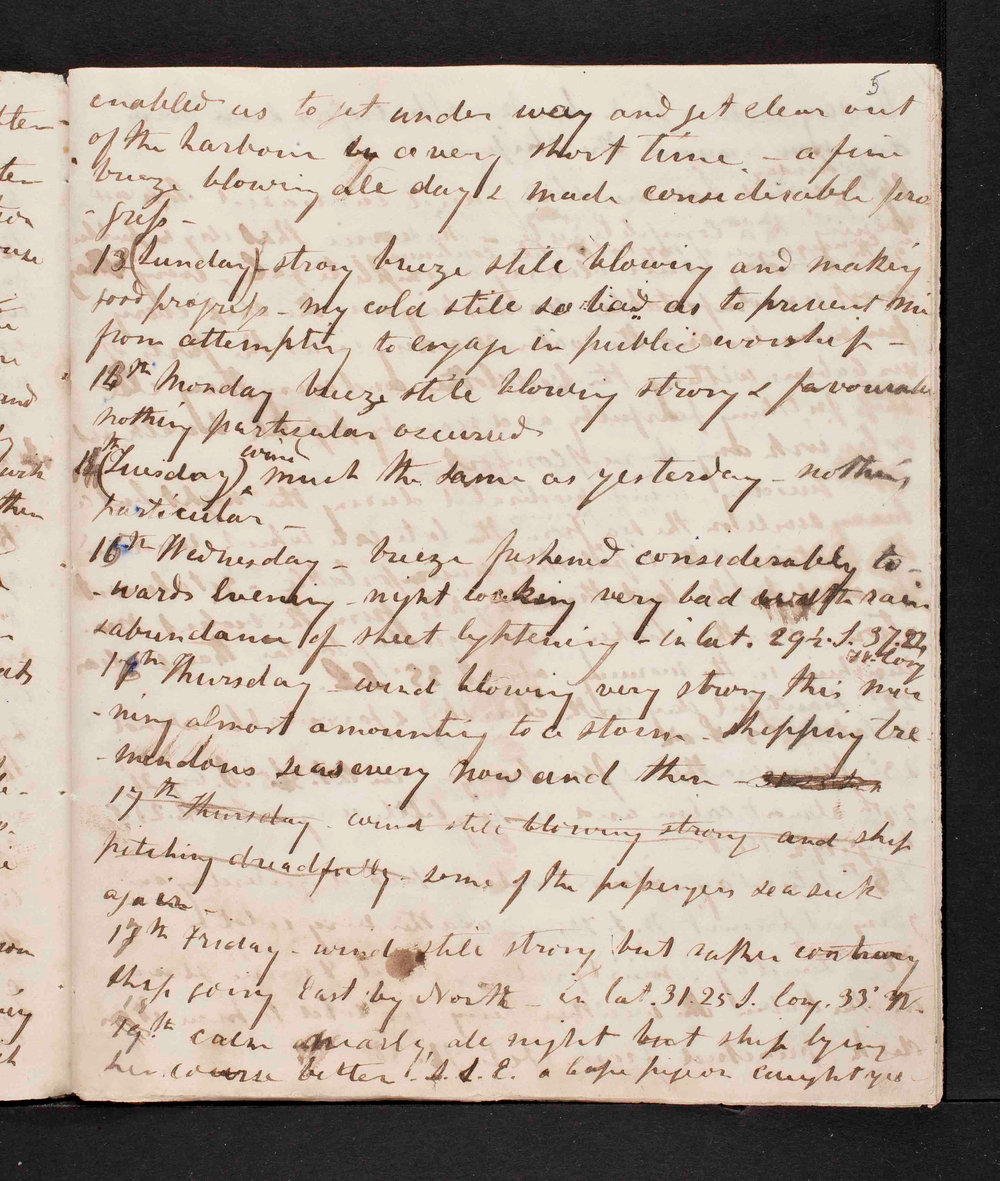 5
enabled us to get under way and get clear out
of the harbour in a very short time – a fine
breeze blowing all day & made considerable pro
-gress –
13 (Sunday) – strong breeze still blowing and making
good progress – my cold still so bad as to prevent me
from attempting to engage in public worship –
14th Monday breeze still blowing strong & favourable
nothing particular occurred
15th (Tuesday) wind much the same as yesterday – nothing
particular –
16th Wednesday – breeze freshened considerably to-
-wards Evening – night looking very bad with rain
& abundance of sheet lightening – in lat. 29½ S. 37.22
W. long
17th Thursday – wind blowing very strong this mor
-ning almost amounting to a storm – shipping tre-
-mendous seas every now and then –
17th Thursday – wind still blowing strong and ship
pitching dreadfully – some of the passengers sea sick
again –
18th Friday – wind still strong but rather contrary
ship going East by North – in lat. 31.25 S. long. 33° W.
19th calm nearly all night but ship lying
her course better – S.S.E. a Cape pigeon caught yes-